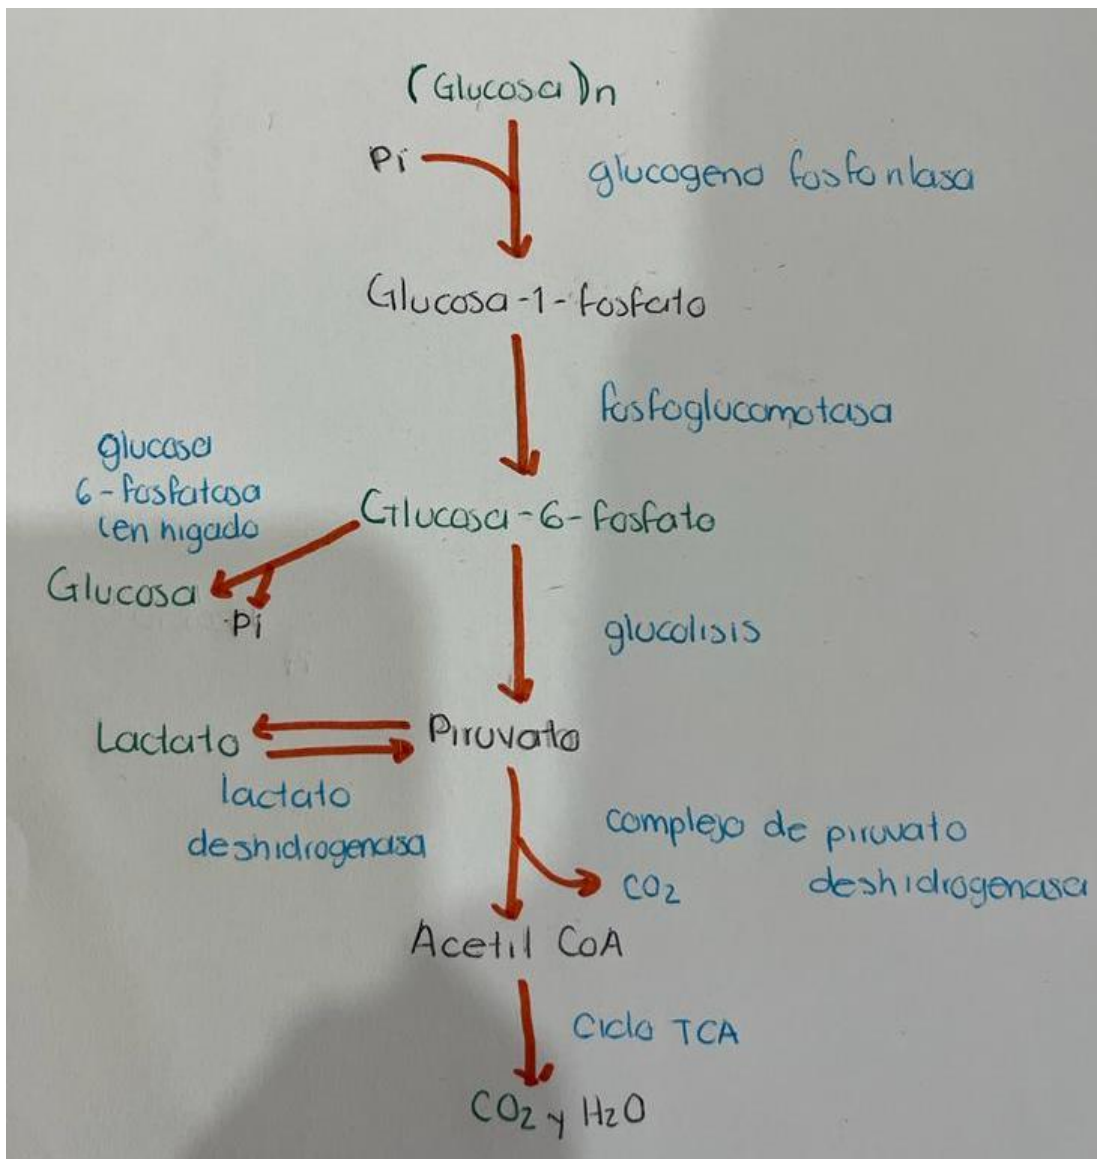 (Glucosa)n
Pi
glucogeno fosfonlasa
Glucosa-1-fosfato
fosfoglucomotasa
glucosa
6-fosfatasa
(en higado
Glucosa-6-fosfato
Glucosa
Pi
glucolisis
Lactato
Piruvato
lactato
deshidrogenasa
complejo de piruvato
deshidrogenasa
CO2
Acetil CoA
Ciclo TCA
CO2 y H2O